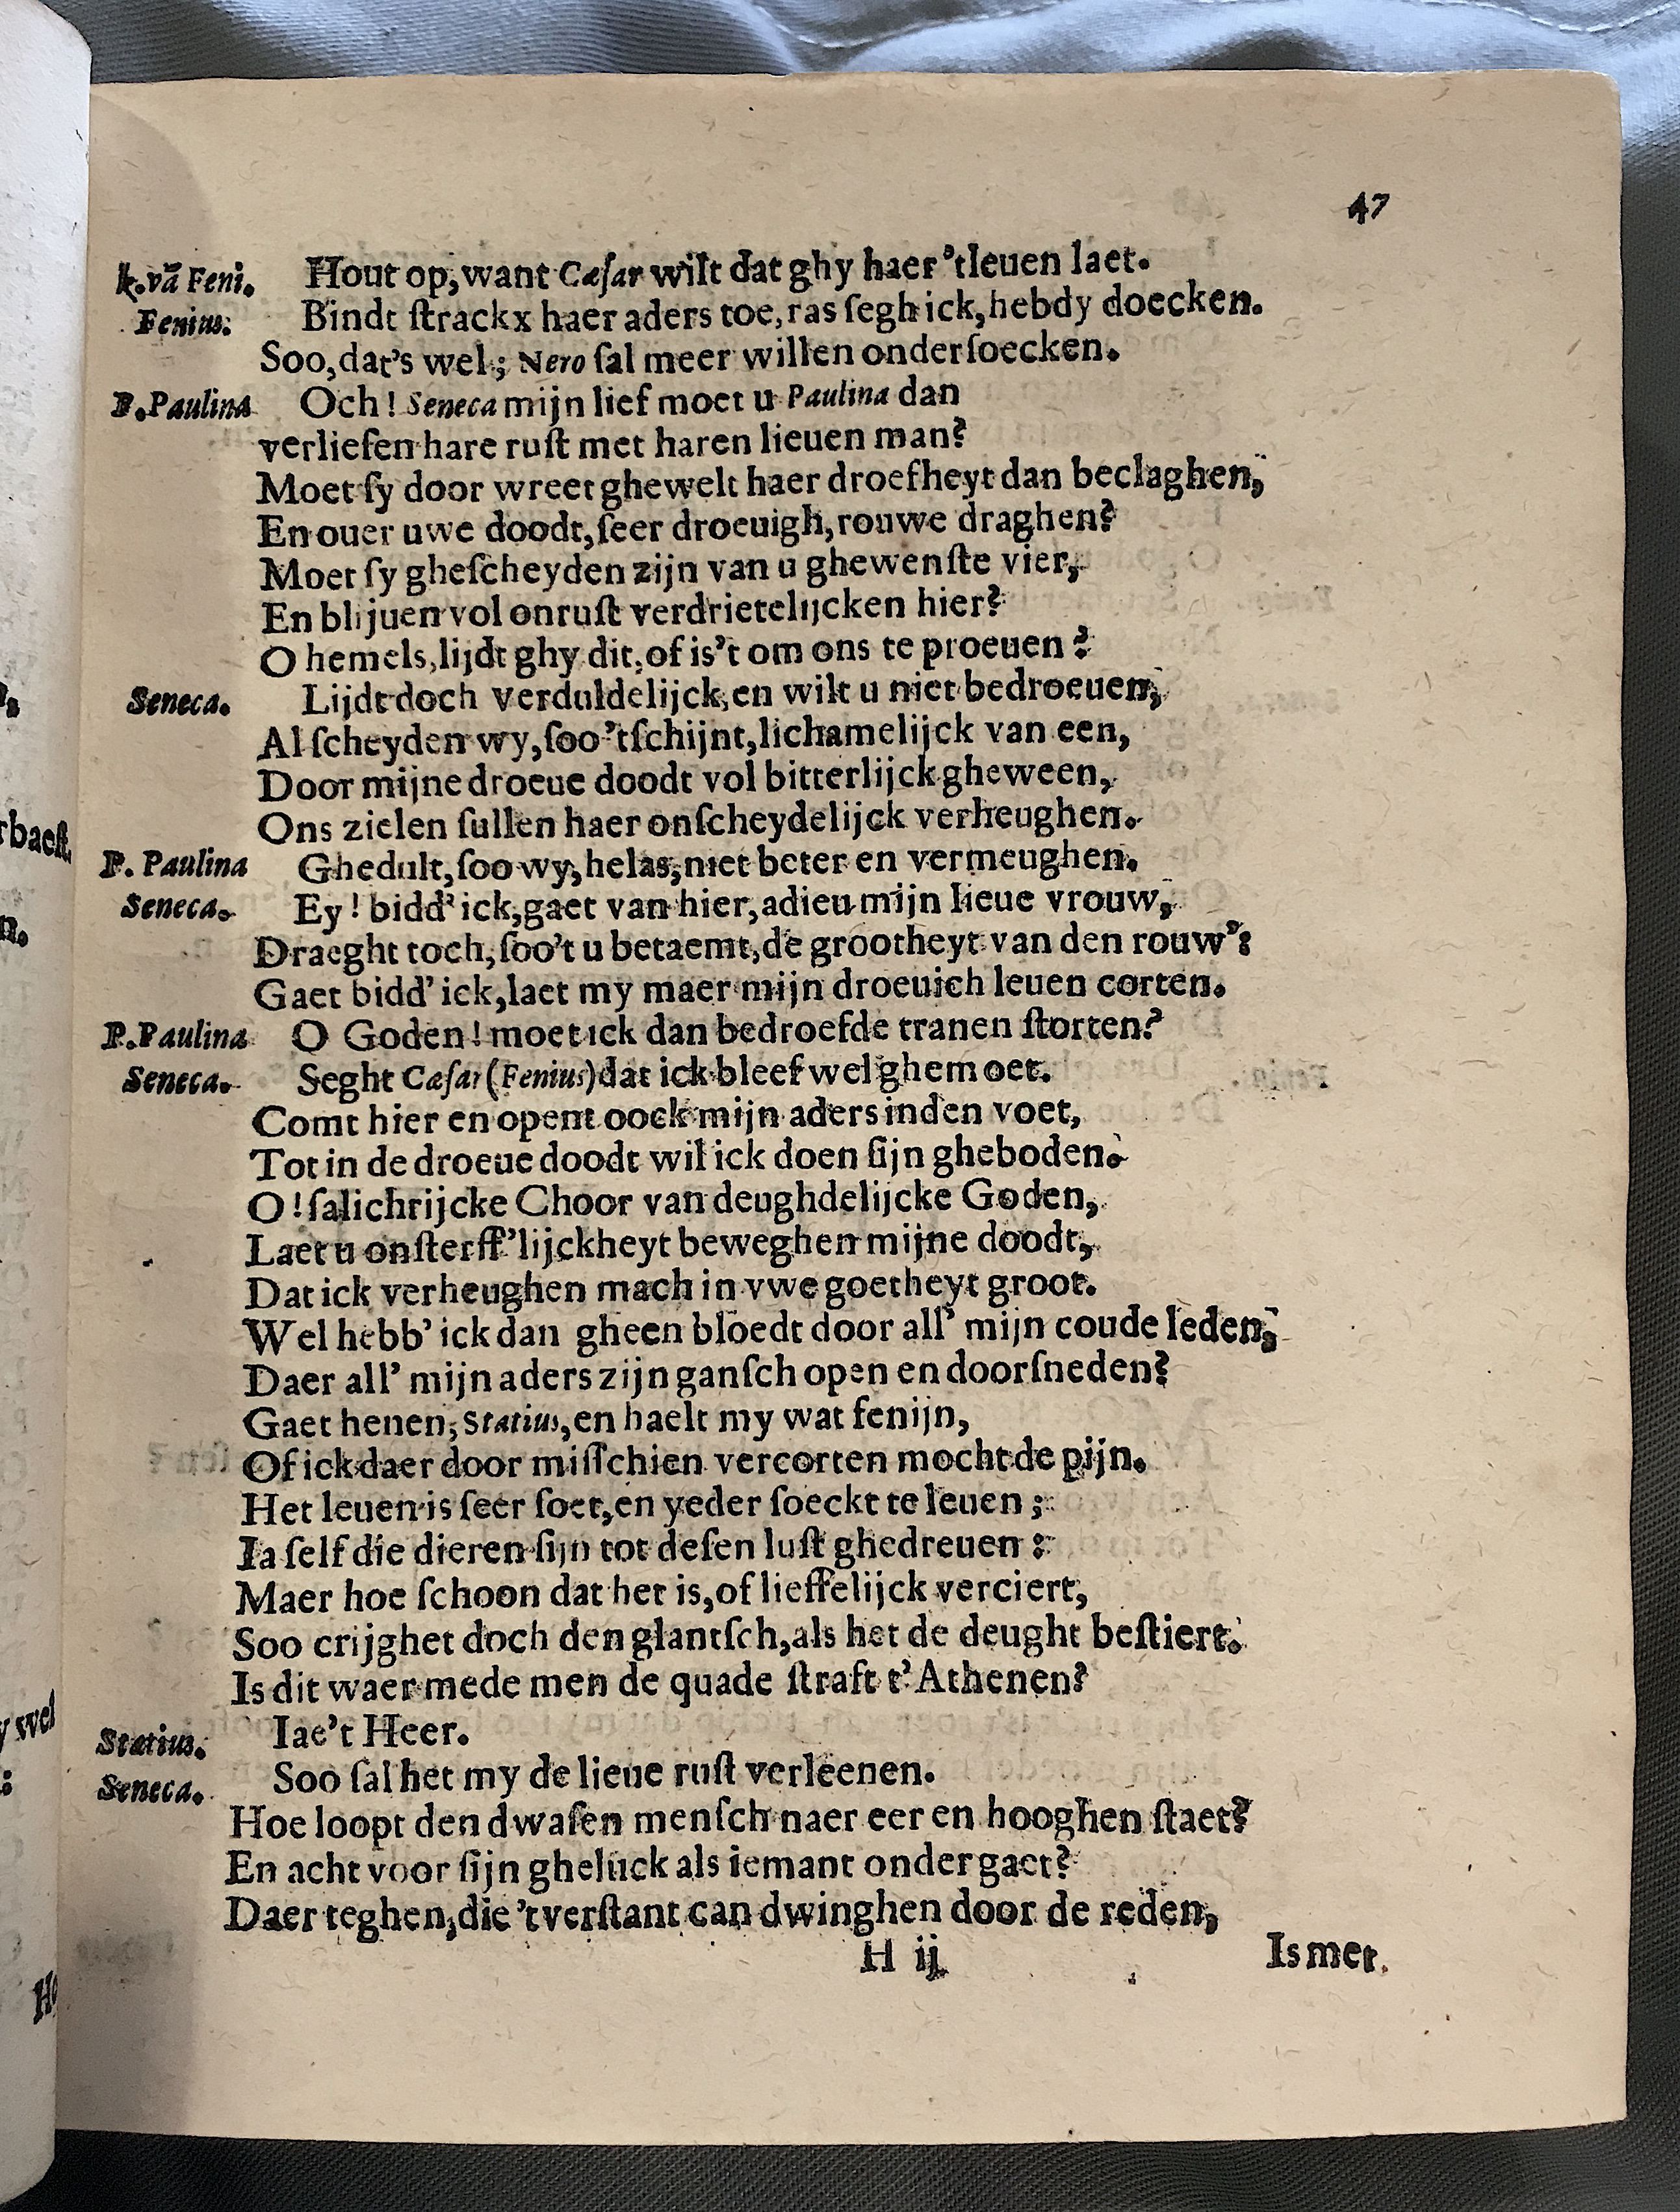 47
k.vā Feni. Hout op, want Cæſar wilt dat ghy haer 'tleuen laet.
Fenius. Bindt ſtrackx haer aders toe, ras ſegh ick, hebdy doecken.
Soo, dat's wel; Nero ſal meer willen onderſoecken.
P. Paulina Och! Seneca mijn lief moet u Paulina dan
verlieſen hare ruſt met haren lieuen man?
Moet ſy door wreet ghewelt haer droefheyt dan beclaghen,
En ouer uwe doodt, ſeer droeuigh, rouwe draghen?
Moet ſy gheſcheyden zijn van u ghewenſte vier,
En blijuen vol onruſt verdrietelijcken hier?
O hemels, lijdt ghy dit, of is't om ons te proeuen?
Seneca. Lijdt doch verduldelijck, en wilt u niet bedroeuen,
Al ſcheyden wy, ſoo 'tſchijnt, lichamelijck van een,
Door mijne droeue doodt vol bitterlijck gheween,
Ons zielen ſullen haer onſcheydelijck verheughen.
P. Paulina Ghedult, ſoo wy, helas, niet beter en vermeughen.
Seneca. Ey! bidd' ick, gaet van hier, adieu mijn lieue vrouw,
Draeght toch, ſoo't u betaemt, de grootheyt van den rouw':
Gaet bidd' ick, laet my maer mijn droeuich leuen corten.
P. Paulina O Goden! moet ick dan bedroefde tranen ſtorten?
Seneca. Seght Cæſar (Fenius) dat ick bleef wel ghemoet.
Comt hier en opent oock mijn aders inden voet,
Tot in de droeue doodt wil ick doen ſijn gheboden.
O! ſalichrijcke Choor van deughdelijcke Goden,
Laet u onſterff'lijckheyt beweghen mijne doodt,
Dat ick verheughen mach in vwe goetheyt groot.
Wel hebb' ick dan gheen bloedt door all' mijn coude leden,
Daer all' mijn aders zijn ganſch open en doorſneden?
Gaet henen, Statius, en haelt my wat fenijn,
Of ick daer door miſſchien vercorten mocht de pijn.
Het leuen is ſeer ſoet, en yeder ſoeckt te leuen;
Ia ſelf die dieren ſijn tot deſen luſt ghedreuen:
Maer hoe ſchoon dat het is, of lieffelijck verciert,
Soo crijghet doch den glantſch, als het de deught beſtiert.
Is dit waer mede men de quade ſtraft t' Athenen?
Statius. Iae't Heer.
Seneca. Soo ſal het my de lieue ruſt verleenen.
Hoe loopt den dwaſen menſch naer eer en hooghen ſtaet?
En acht voor ſijn gheluck als iemant ondergaet?
Daer teghen, die 'tverſtant can dwinghen door de reden,
H ij Is met